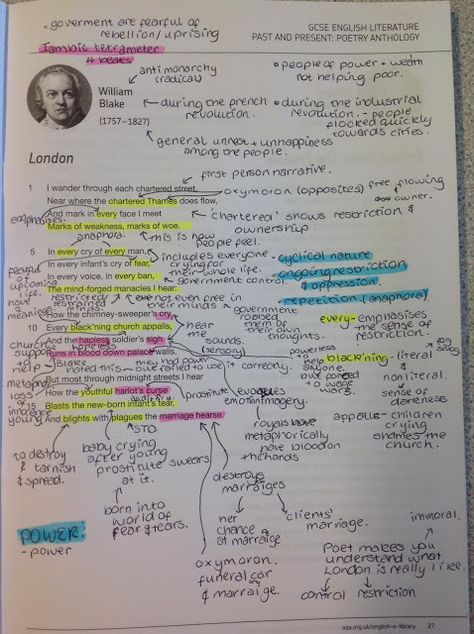 • goverment are fearful of
rebellion/uprising
Iambic tetrameter
4 beats
GCSE ENGLISH LITERATURE
PAST AND PRESENT: POETRY ANTHOLOGY
anti monarchy
(radical)
• people of power + wealth
not helping poor.
William
Blake
(1757–1827)
during the french
revolution.
• during the industrial
revolution. - people
flocked quickly
towards cities.
general unrest + unhappiness
among the people.
London
first person narrative.
1 I wander through each chartered street,
oxymoron (opposites) free flowing
owner.
Near where the chartered Thames does flow,
And mark in every face I meet
'chartered' shows restriction &
ownership
emphasises.
Marks of weakness, marks of woe.
anaphora.
this is how
people feel.
5 In every cry of every man,
includes everyone
cyclical nature
In every infant's cry of fear,
crying for
their whole life.
ongoing restriction
& oppression.
In every voice, in every ban,
government control
The mind-forged manacles I hear:
repetition (anaphora)
fearful
of
upcoming
life.
have
meaning
restricted
restrained
minds
not even free in
their minds
government
robbed
them of
their own
thoughts.
every- emphasises
the sense of
restriction.
How the chimney-sweeper's cry
10 Every black'ning church appals,
hear
me
And the hapless soldier's sigh
hopeless
sounds
(sensory)
Runs in blood down palace walls.
church
support
to
help
Blake
hated this
had power
failed to use it correctly.
powerless
to help
anyone
but forced
to wage
wars
black'ning -literal
&
nonliteral.
sense of
dereliction
But most through midnight streets I hear
How the youthful harlot's curse
auditory
prostitute
evokes
emotion
imagery.
15 Blasts the new-born infant's tear,
And blights with plagues the marriage hearse.
loss of
innocence
young
STD
royals have
metaphorically
have blood on
the hands
appals - children
crying
shames the
church.
to destroy
& tarnish
& spread.
baby crying
after young
prostitute swears
at it.
destroys
marraiges
born into
world of
fear & tears.
her
chance
at marraige
clients'
marriage.
immoral.
POWER:
- power
oxymoron.
funeral car
& marraige.
Poet makes you
understand what
London is really like.
control restriction
aqa.org.uk/english-e-library 27